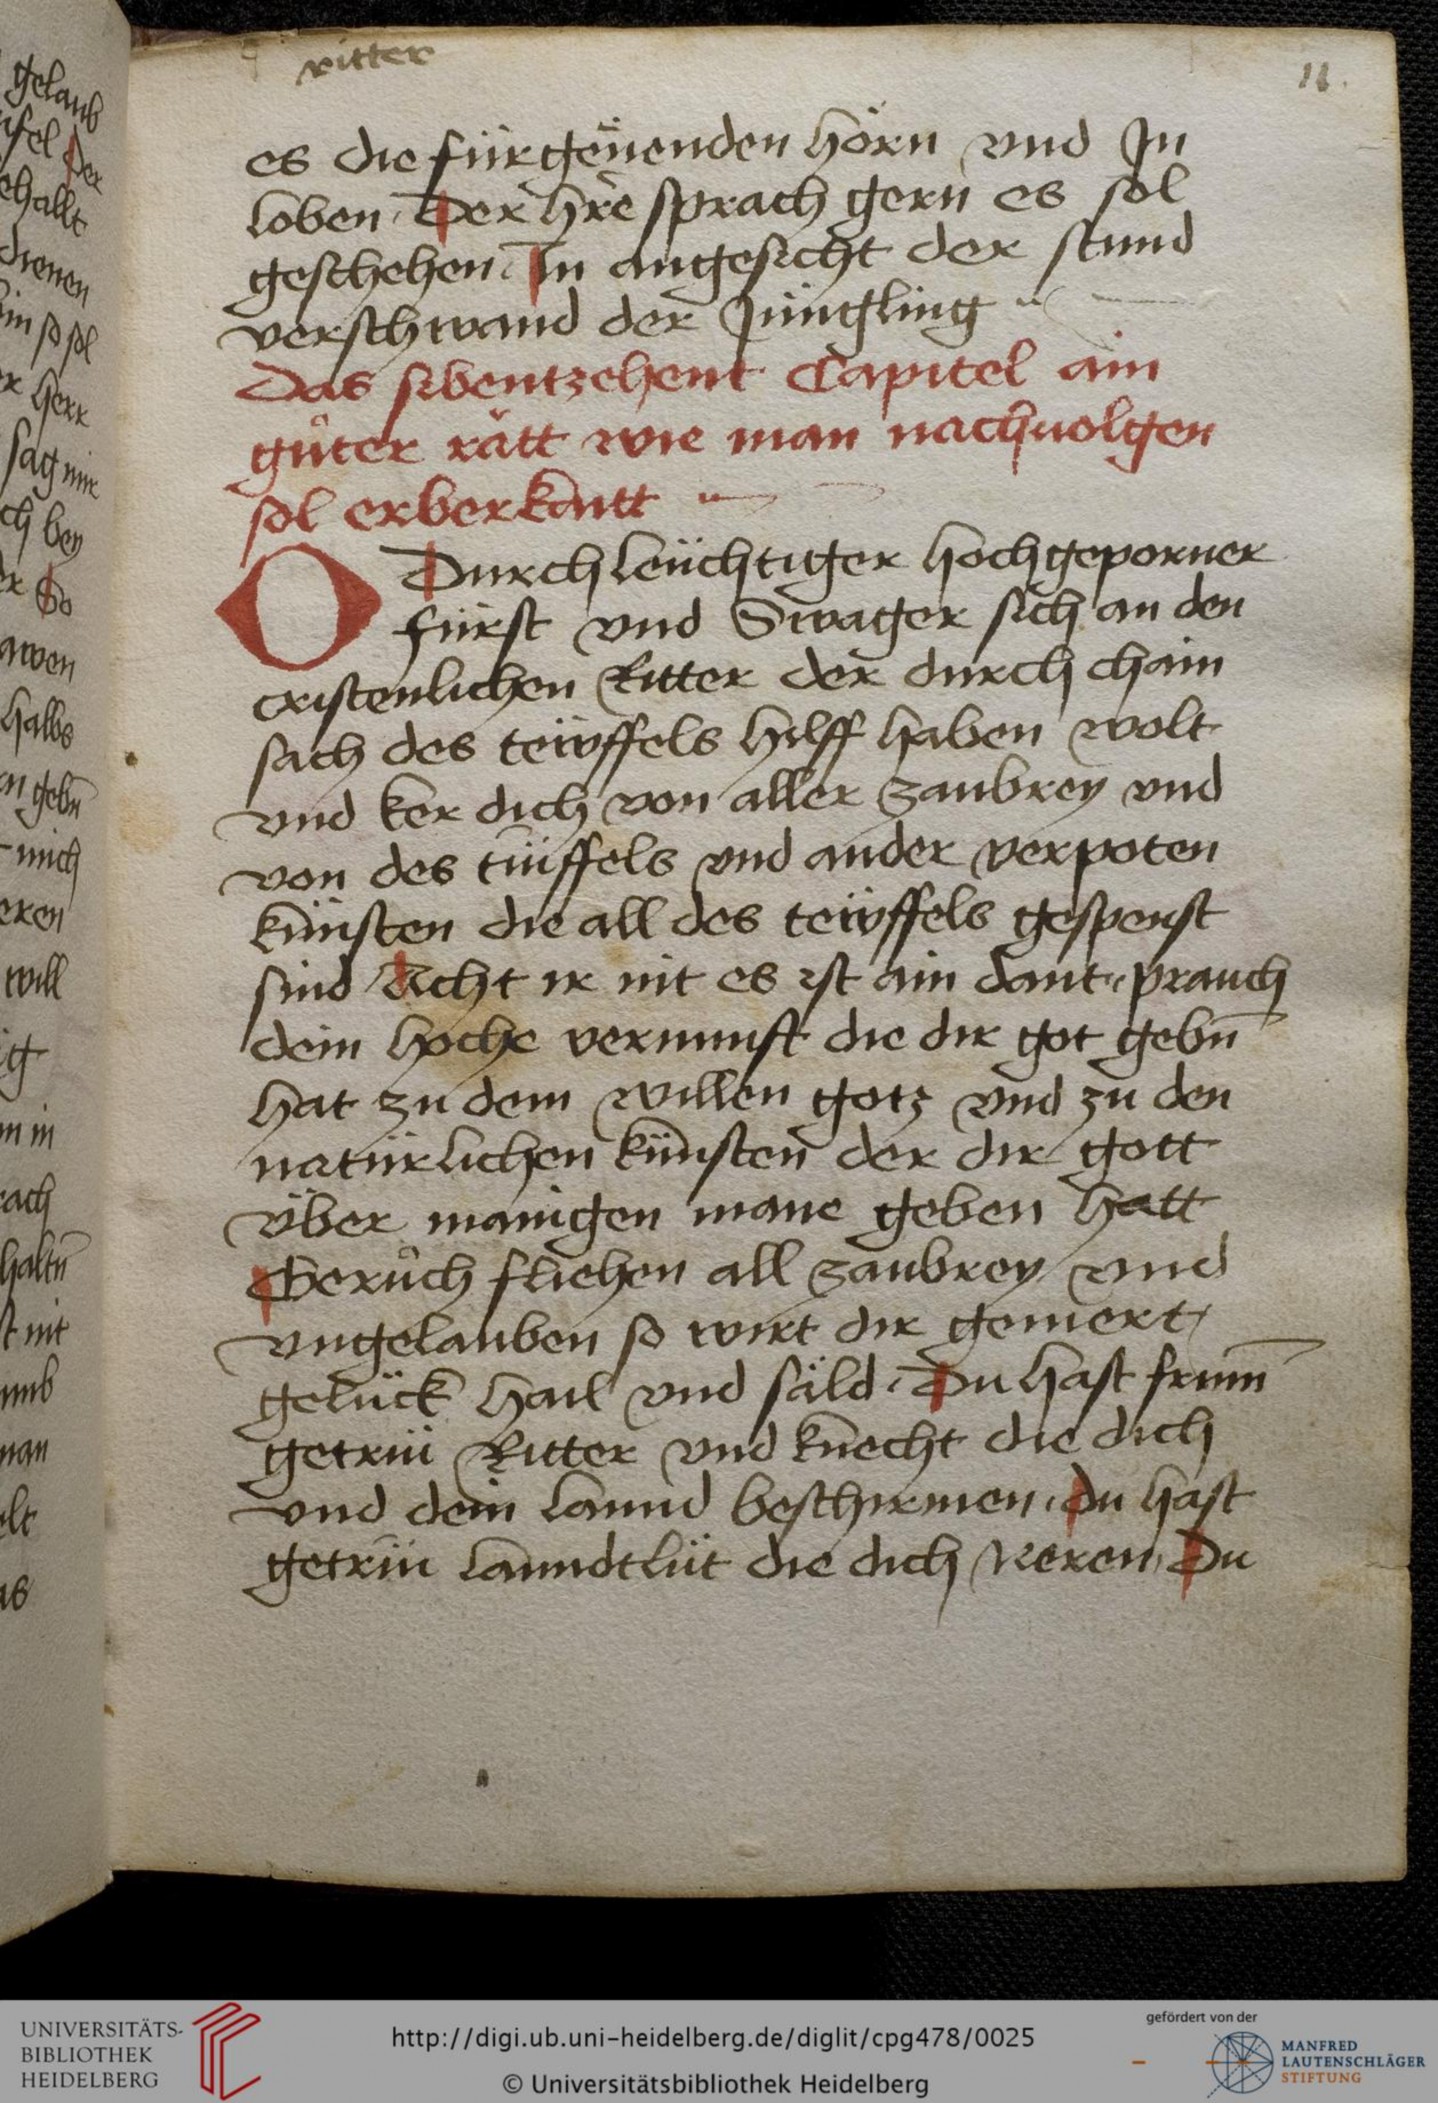 ritter
11.
es die fürgeüenden hörn vnd Jn
loben. Der hre sprach gern es sol
geschehen. In angesicht der stund
verschwand der Jüngling
Das sibentzehent Capitel ain
gůter rätt wie man nachuolgen
sol erberkaitt
O Durchleüchtiger hochgeporner
fürst vnd Swager sich an den
cristenlichen Ritter der durch chain
sach des teẅffels hilff haben wolt
vnd ker dich von aller zaubrey vnd
von des tiüffels vnd ander verpoten
künsten die all des teẅffels gespenst
sind Acht ir nit es ist ain dant. prauch
dein hoche vernunfft die dir got gebn̄
hat zu dem willen gotz vnd zu den
natürlichen künsten der dir gott
über manigen mane geben hatt
Gerůch fliehen all zaubrey vnd
vngelauben so wirt dir gemert
gelück hail vnd säld. Du hast frum̄
getrüi Ritter vnd knecht die dich
vnd dein lannd beschirmen. du hast
getrüi lanndtlüt die dich Neren, Du
gelaub
ifel der
ehallt
dienen
bin so sol
er herr
sag mir
ch bey
er So
awen
halbs
en gebn̄
mich
eren
will
ig
m in
rach
haltn̄
st nit
umb
man
elt
as
UNIVERSITÄTS-
BIBLIOTHEK
HEIDELBERG
http://digi.ub.uni-heidelberg.de/diglit/cpg478/0025
© Universitätsbibliothek Heidelberg
gefördert von der
MANFRED
LAUTENSCHLÄGER
STIFTUNG